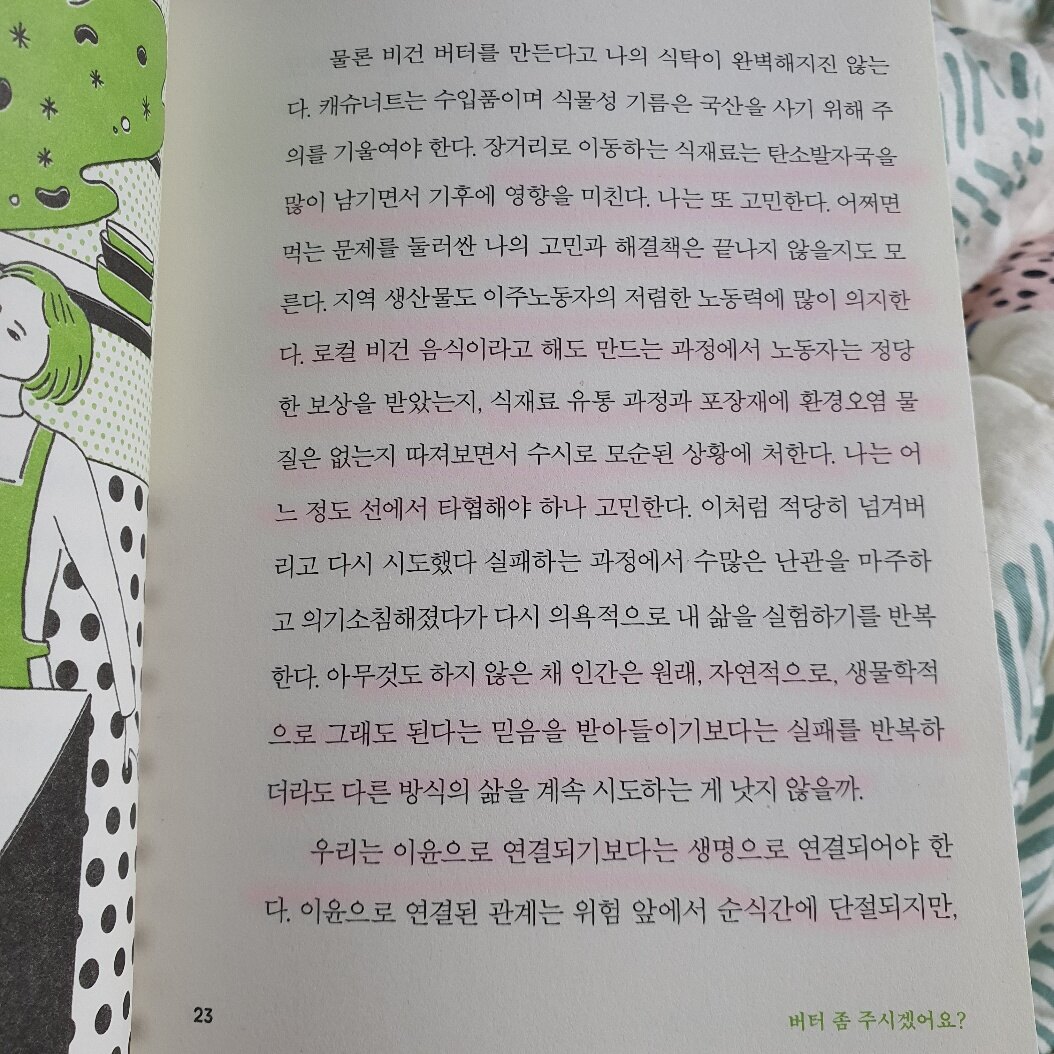 물론 비건 버터를 만든다고 나의 식탁이 완벽해지진 않는
다. 캐슈너트는 수입품이며 식물성 기름은 국산을 사기 위해 주
의를 기울여야 한다. 장거리로 이동하는 식재료는 탄소발자국을
많이 남기면서 기후에 영향을 미친다. 나는 또 고민한다. 어쩌면
먹는 문제를 둘러싼 나의 고민과 해결책은 끝나지 않을지도 모
른다. 지역 생산물도 이주노동자의 저렴한 노동력에 많이 의지한
다. 로컬 비건 음식이라고 해도 만드는 과정에서 노동자는 정당
한 보상을 받았는지, 식재료 유통 과정과 포장재에 환경오염 물
질은 없는지 따져보면서 수시로 모순된 상황에 처한다. 나는 어
느 정도 선에서 타협해야 하나 고민한다. 이처럼 적당히 넘겨버
리고 다시 시도했다 실패하는 과정에서 수많은 난관을 마주하
고 의기소침해졌다가 다시 의욕적으로 내 삶을 실험하기를 반복
한다. 아무것도 하지 않은 채 인간은 원래, 자연적으로, 생물학적
으로 그래도 된다는 믿음을 받아들이기보다는 실패를 반복하
더라도 다른 방식의 삶을 계속 시도하는 게 낫지 않을까.
우리는 이윤으로 연결되기보다는 생명으로 연결되어야 한
다. 이윤으로 연결된 관계는 위험 앞에서 순식간에 단절되지만,
23
버터 좀 주시겠어요?